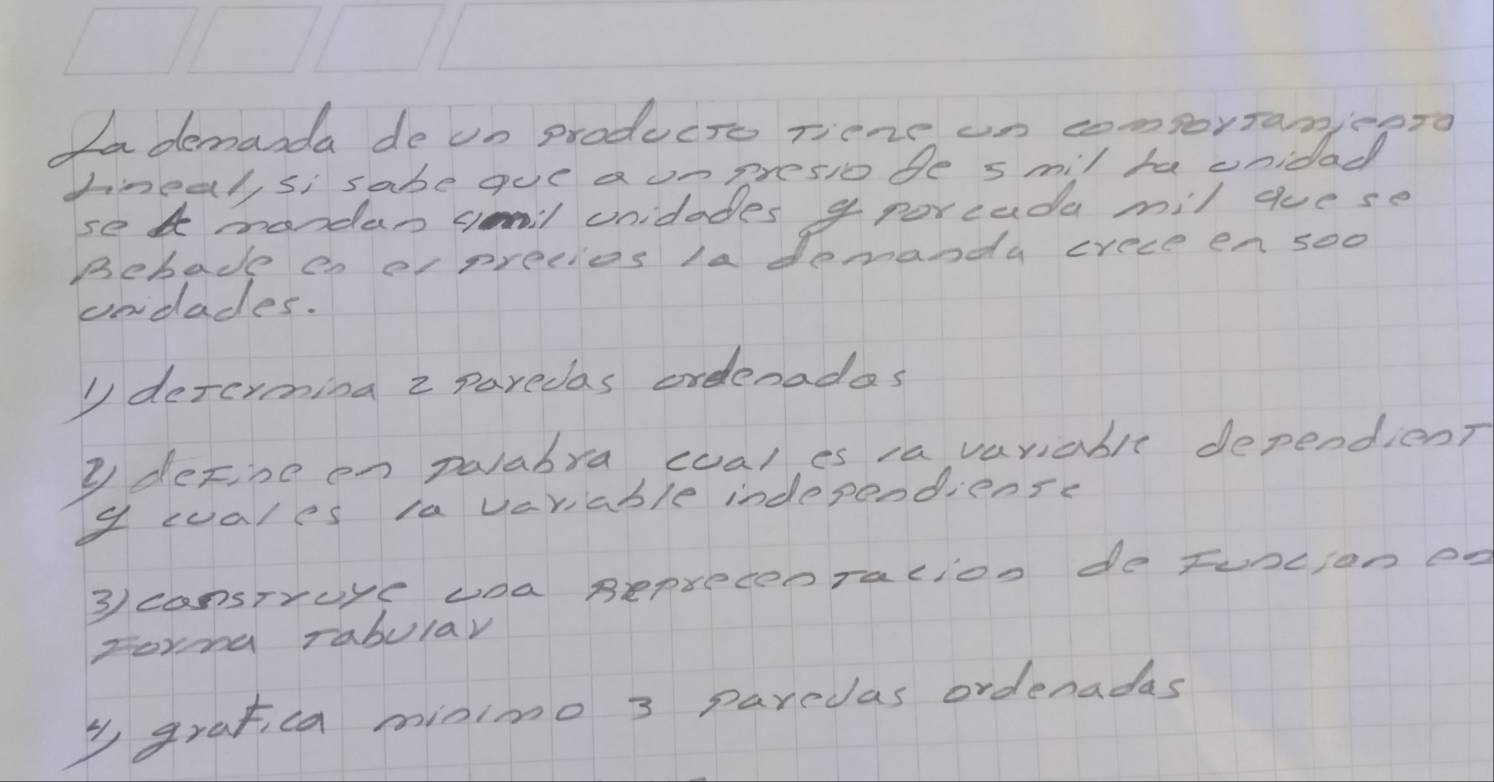 La demanda de un producto tiene un comportamiento
Lineal, si sabe que a un presio de 5 mil la unidad
se mandan 4 mil unidades y por cada mil que se
Rebade en el precios la demanda crece en 500
unidades.
1) determina 2 paredas ordenadas
2) define en palabra cual es la variable dependient
y cual es la variable independiente
3) construye una Reprecentacion de funcion en
forma tabular
4) grafica minimo 3 paredas ordenadas